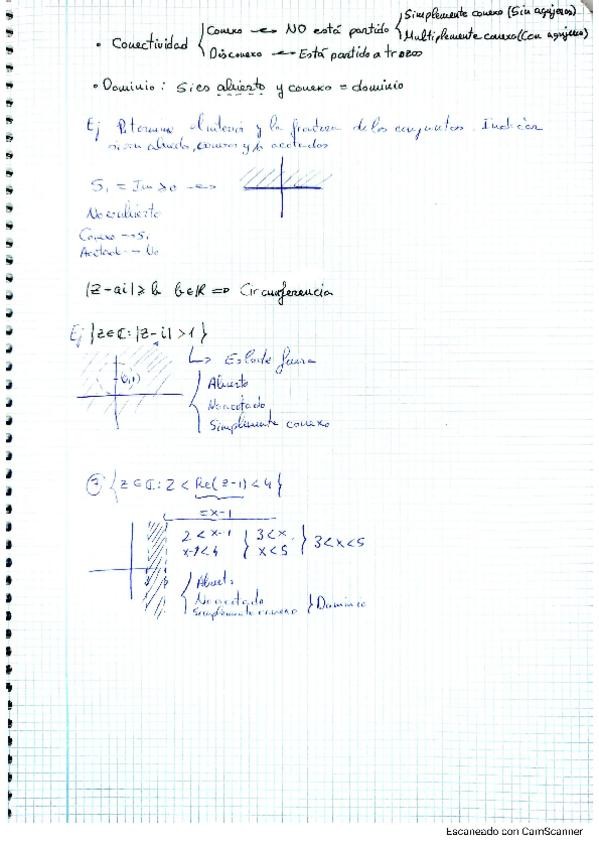 • Conectividad { Conexo → NO está partido { Simplemente conexo (Sin agujeros)
Multiplemente conexo (Con agujeros)
Disconexo → Está partido a trozos
• Dominio: Si es abierto y conexo = dominio
Ej Determina el interior y la frontera de los conjuntos. Indicar
si son abiertos, conexos y/o acotados
S₁ = Im ≥ 0 →
No es abierto
Conexo → Si
Acotado → No
|z-ai| ≥ b b∈ℝ ⇒ Circunferencia
Ej {z∈ℂ: |z-i| > 1}
↳ Es la de fuera
(0,1)
{ Abierto
No acotado
Simplemente conexo
② {z∈ℂ: 2 < Re(z-1) < 4}
= x-1
2 < x-1 } 3 < x } 3 < x < 5
x-1 < 4 x < 5
{ Abierto
No acotado
Simplemente conexo } Dominio
Escaneado con CamScanner